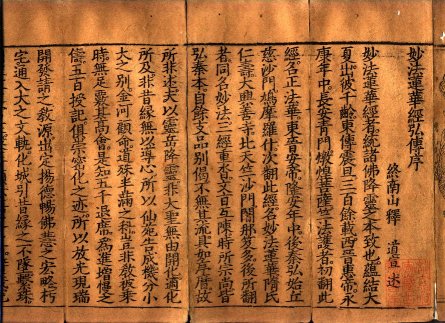 妙法蓮華經弘傳序
終南山釋 道宣 述
妙法蓮華經者統諸佛降靈之本致也蘊結大
夏出彼千齡東傳震旦三百餘載西晉惠帝永
康年中長安青門燉煌菩薩竺法護者初翻此
經名正法華東晉安帝隆安年中後秦弘始丘
慈沙門鳩摩羅什次翻此經名妙法蓮華隋氏
仁壽大興善寺北天竺沙門闍那笈多後所翻
者同名妙法三經重沓文旨互陳時所宗尚皆
弘秦本自餘支品別偈不無其流具如序曆故
所非述夫以靈岳降靈非大聖無由開化適化
所及非昔緣無以導心所以仙苑告成機分小
大之別金河顧命道殊半滿之科豈非教被乘
時無足覈其高會是知五千退席為進增慢之
儔五百授記俱崇密化之迹所以放光現瑞
開發請之教源出定揚德暢佛慧之宏略朽
宅通入大之文軌化城引昔緣之不墜繫珠